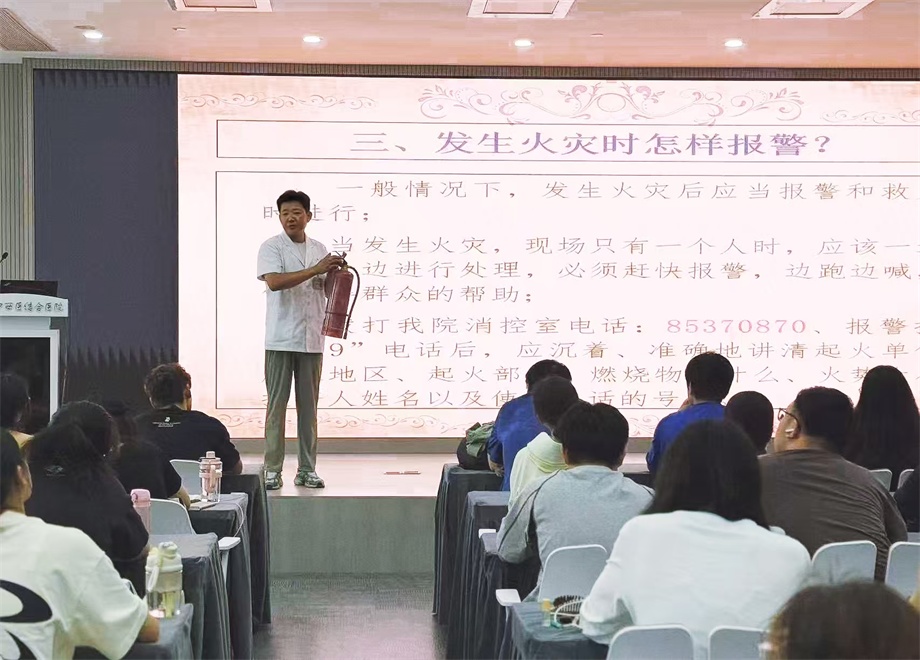 三、发生火灾时怎样报警?
一般情况下，发生火灾后应当报警和救
时进行；
当发生火灾，现场只有一个人时，应该一
边进行处理，必须赶快报警，边跑边喊，
群众的帮助；
打我院消控室电话：85370870、报警
9”电话后，应沉着、准确地讲清起火单
地区、起火部 燃烧物 什么、火势
人姓名以及使 话的号
西医结合医院